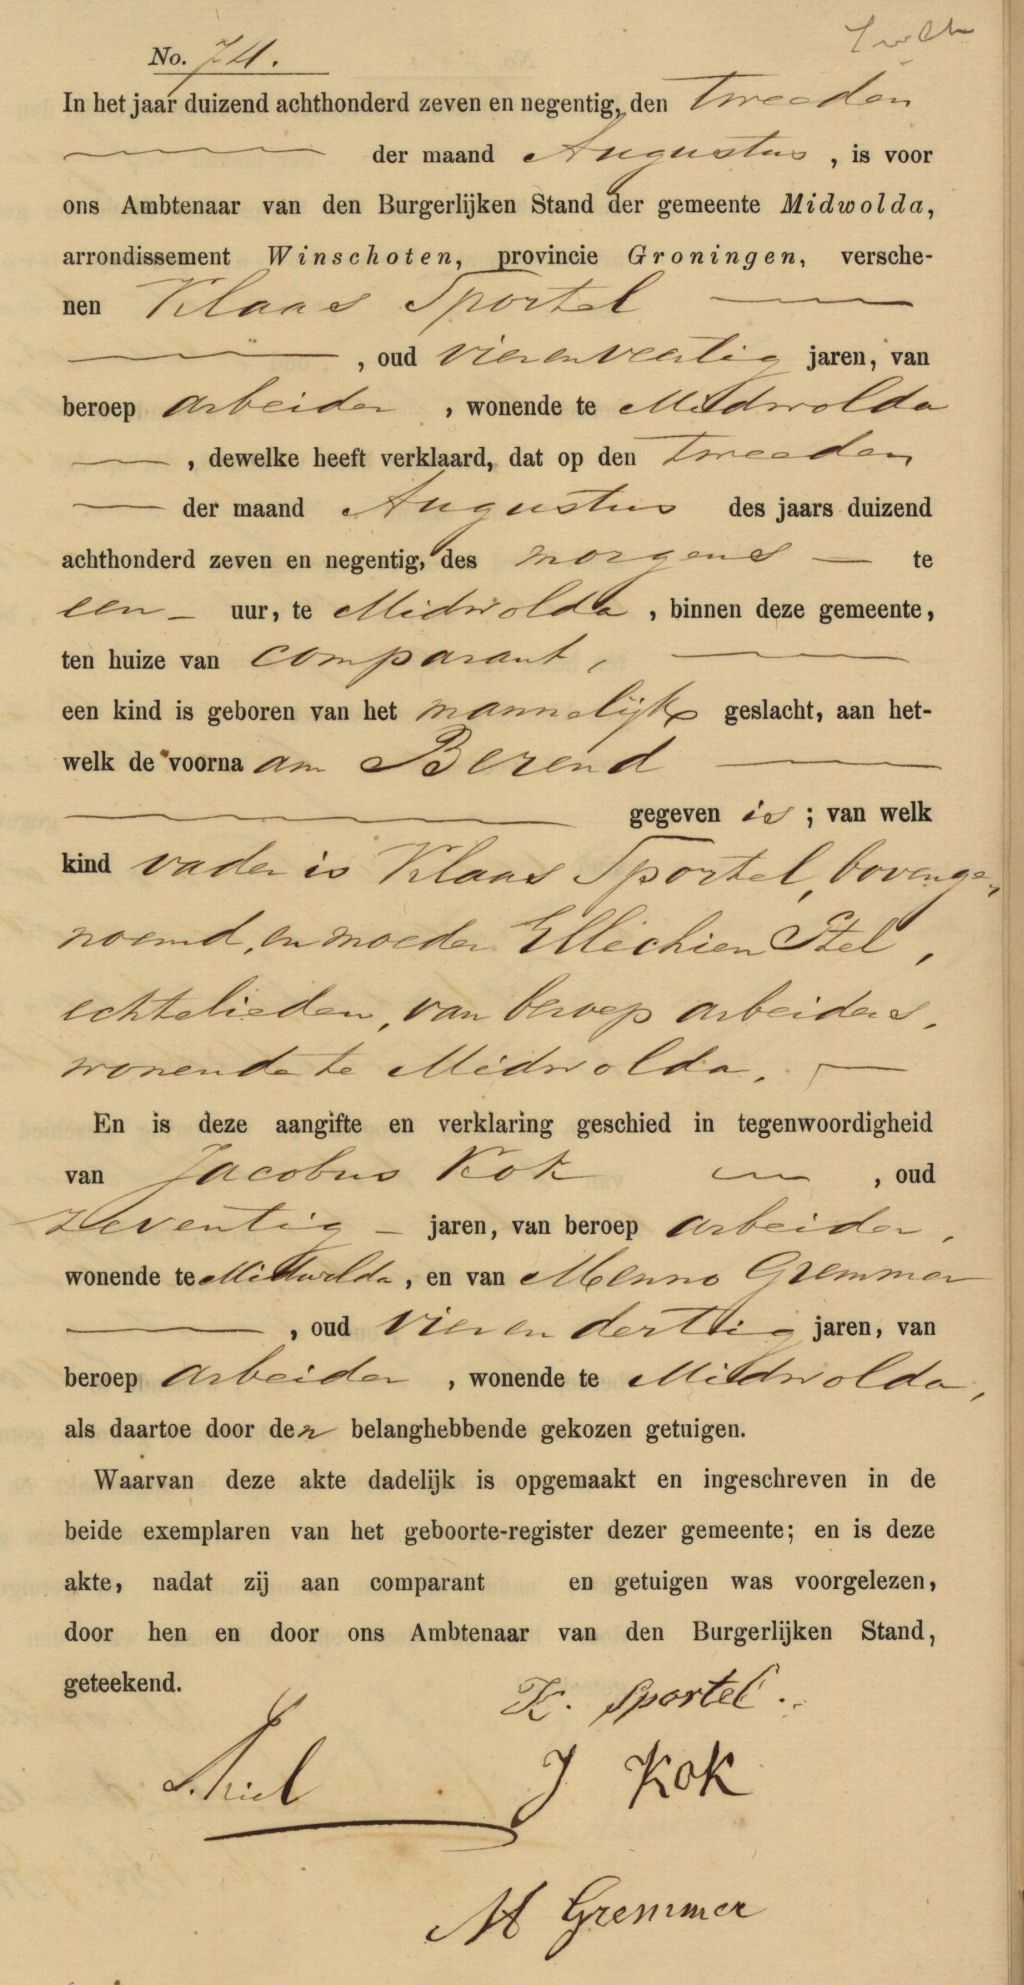 No. 74.
In het jaar duizend achthonderd zeven en negentig, den tweeden
der maand Augustus, is voor
ons Ambtenaar van den Burgerlijken Stand der gemeente Midwolda,
arrondissement Winschoten, provincie Groningen, versche-
nen Klaas Sportel
, oud vierenveertig jaren, van
beroep arbeider, wonende te Midwolda
, dewelke heeft verklaard, dat op den tweeden
der maand Augustus des jaars duizend
achthonderd zeven en negentig, des morgens te
een uur, te Midwolda, binnen deze gemeente,
ten huize van comparant,
een kind is geboren van het mannelijk geslacht, aan het-
welk de voornaam Berend
gegeven is; van welk
kind vader is Klaas Sportel, bovenge-
noemd, en moeder Ellechien Stel,
echtelieden, van beroep arbeiders,
wonende te Midwolda.
En is deze aangifte en verklaring geschied in tegenwoordigheid
van Jacobus Kok, oud
zeventig jaren, van beroep arbeider,
wonende te Midwolda, en van Menno Gremmer
, oud vierendertig jaren, van
beroep arbeider, wonende te Midwolda,
als daartoe door den belanghebbende gekozen getuigen.
Waarvan deze akte dadelijk is opgemaakt en ingeschreven in de
beide exemplaren van het geboorte-register dezer gemeente; en is deze
akte, nadat zij aan comparant en getuigen was voorgelezen,
door hen en door ons Ambtenaar van den Burgerlijken Stand,
geteekend.
K. Sportel.
J Kok
M Gremmer